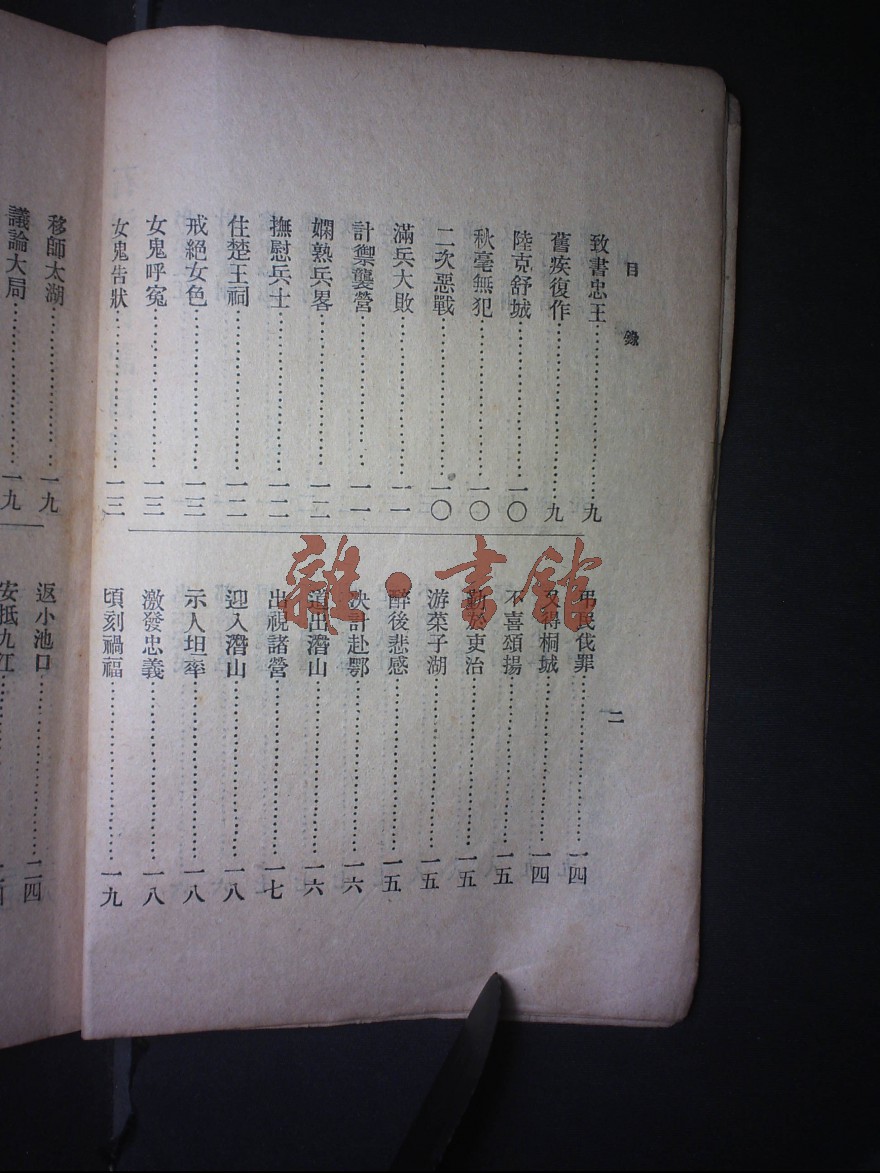 目錄
二
致書忠王……九
舊疾復作……九
陸克舒城……一〇
秋毫無犯……一〇
二次惡戰……一〇
滿兵大敗……一一
計禦襲營……一一
嫻熟兵畧……一二
撫慰兵士……一二
住楚王祠……一二
戒絕女色……一三
女鬼呼冤……一三
女鬼告狀……一三
弔民伐罪……一四
又得桐城……一四
不喜頌揚……一五
勤於吏治……一五
游菜子湖……一五
醉後悲感……一五
決計赴鄂……一六
道出潛山……一六
出視諸營……一七
迎入潛山……一八
示人坦率……一八
激發忠義……一八
頃刻禍福……一九
移師太湖……一九
議論大局……一九
返小池口……二四
安抵九江……
雜·書館